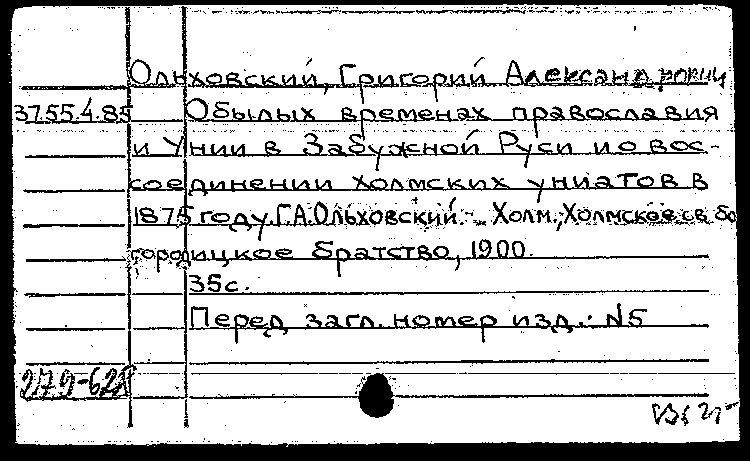 Ольховский, Григорий Александрович
3755.4.85 О былых временах православия
и Унии в Забужной Руси и о вос-
соединении холмских униатов в
1875 году. Г.А. Ольховский. - Холм, Холмское св. бо
городицкое братство, 1900.
35с.
Перед загл. номер изд.: N5